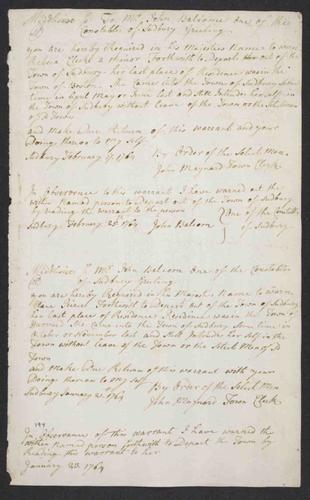 Middlesex Ss To Mr John Balcome One of the
Constables of Sudbury Greeting
you are hereby Required in his Majesties Name to warn
Clark a Minor Forthwith to Depart out of the
Town of Sudbury her last place of Residence was in the
Town of She Came into the Town of Sudbury some
time in May or June last and Still in
the Town of Sudbury without leave of the Town or the Selectmen
of sd Town
and make Due Return of this warrant and your
Doing thereon to my Self
By Order of the Select Men
Sudbury February 1764
John Maynard Town Clerk
In Observence to this warrant I have warned out the
within Named person to Depart out of the Town of Sudbury
by reading this warrant to the person
Sudbury February 28 1764 John Balcom One of the Constables of Sudbury
Middlesex Ss To Mr John Balcom One of the Constables
of Sudbury Greeting
you are hereby Required in his Majesties Name to warn
Forthwith to Depart out of the Town of Sudbury
her last place of Residence was in the Town of
She Came into the Town of Sudbury Some time in
October or November last and Still her Self in the
Town without leave of the Town or the Select Men of sd
Town
and Make Due Return of this warrant with your
Doings thereon to my Self
By Order of the Select Men
Sudbury January 1764
John Maynard Town Clerk
In Observance of this warrant I have warned the
within Named person forthwith to Depart the Town by
Reading this warrant to her
January 1764